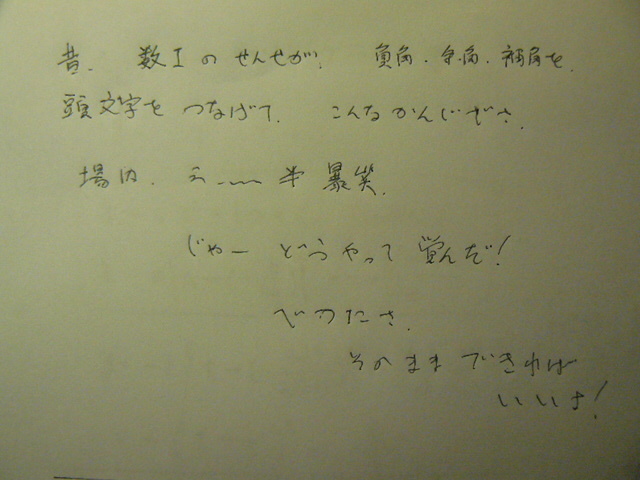 昔、数Iのせんせが、負角・余角・補角を、
頭文字をつなげて、こんなかんじでさ、
場内、え~~半暴笑、
じゃーどうやって覚んだ!
べつにさ、
そのままできれば
いいさ!